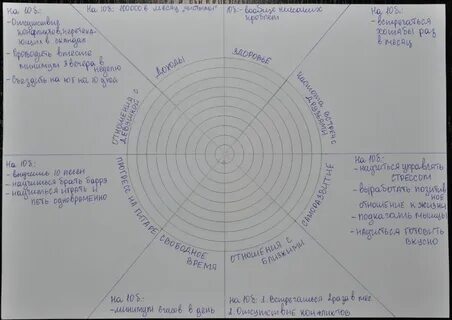 на 10б:
- Отсутствие конфликтов, перетекающих в скандал
- проводить вместе минимум 3 вечера в неделю
- съездить на юг на 10 дней
на 10б: 100000 в месяц
10б: - вообще никаких проблем
на 10б:
- встречаться хотя бы раз в месяц
ДОХОДЫ
ЗДОРОВЬЕ
ОТНОШЕНИЯ С ДЕВУШКОЙ
ЧАСТОТА ВСТРЕЧ С ДРУЗЬЯМИ
ПРОГРЕСС НА ГИТАРЕ
САМОРАЗВИТИЕ
СВОБОДНОЕ ВРЕМЯ
ОТНОШЕНИЯ С БЛИЗКИМИ
На 10б:
- выучить 10 песен
- научиться брать баррэ
- научиться играть и петь одновременно
На 10б:
- научиться управлять СТРЕССОМ
- выработать позитивное отношение к жизни
- подкачать мышцы
- научиться готовить вкусно
на 10б:
- минимум часов в день
на 10б: 1. Встречаться 2 раза в мес
2. Отсутствие конфликтов